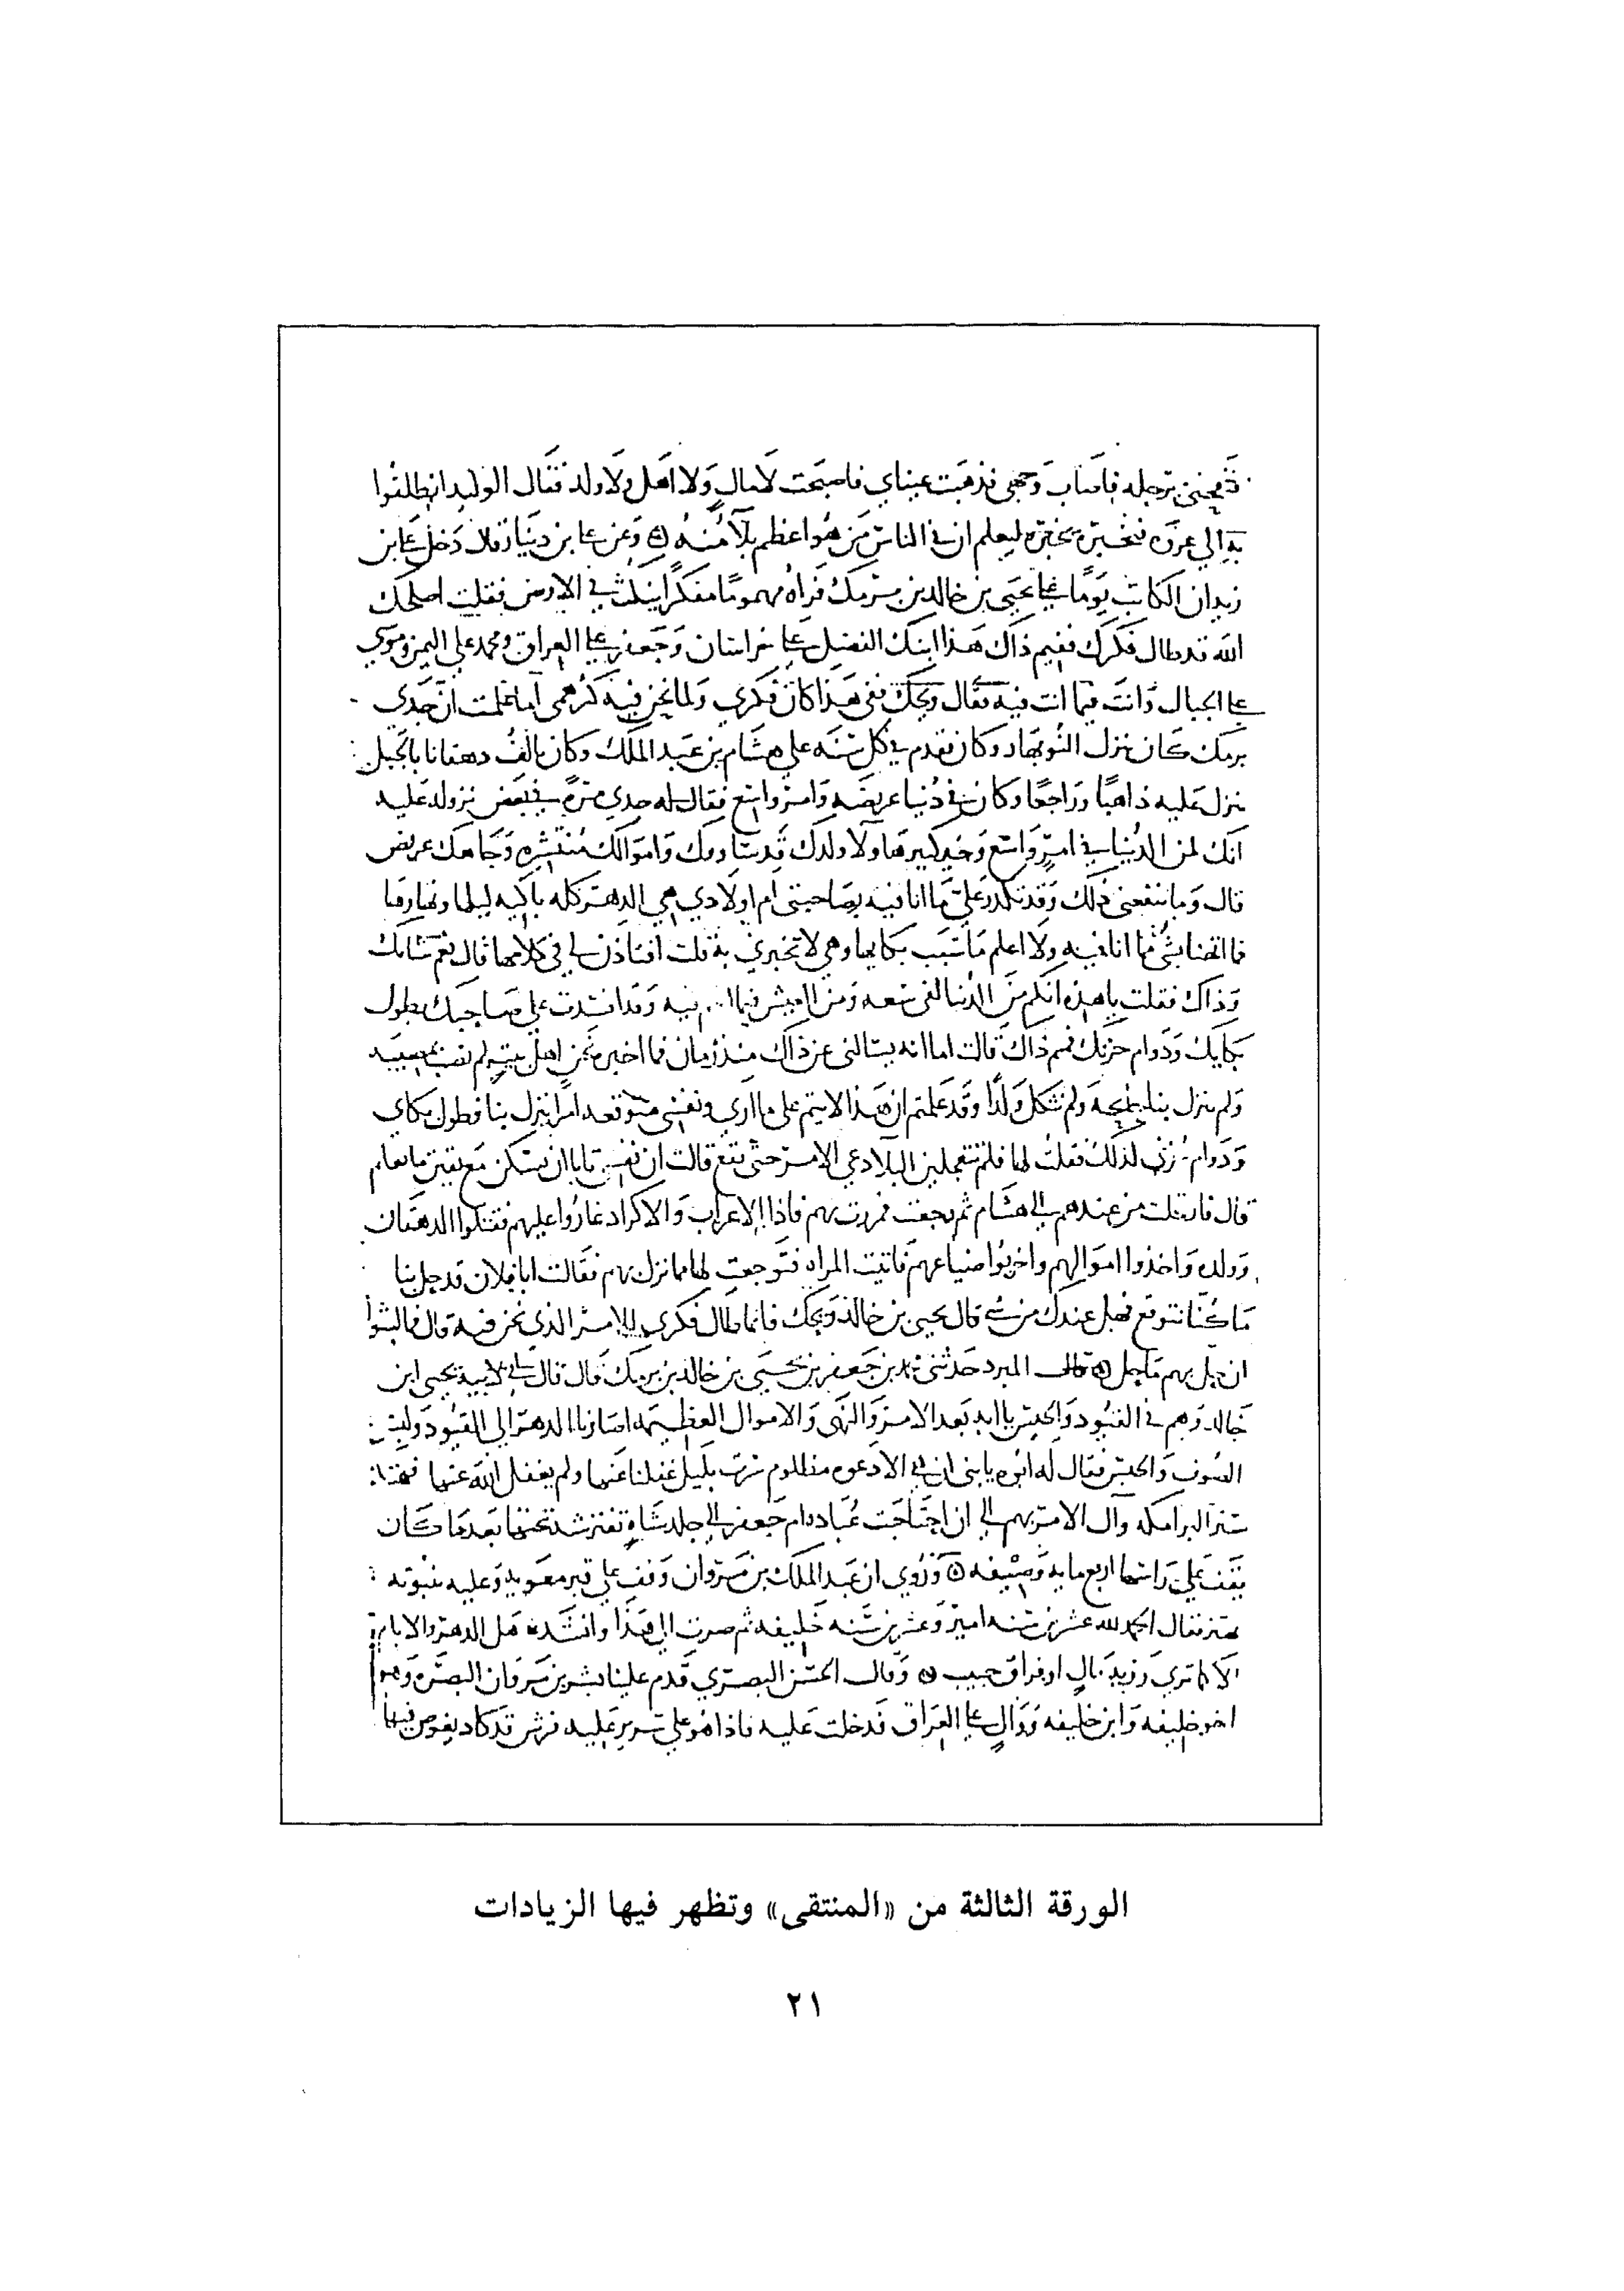 برجله فاصاب وجهي فذهبت عيناي فاصبحت لا مال ولا اهل ولا ولد فقال الوليد انطلقوا
به الى عروه فنخبره بخبره ليعلم ان في الناس من هو اعظم بلآ منه وعن بن دينار قال دخل بن
زيدان الكاتب يوما على يحيى بن خالد بن برمك فراه مهموما مفكرا ينكث في الارض فقلت اصلحك
الله قد طال فكرك ففيم ذاك هذا ابنك الفضل على خراسان وجعفر على العراق ومحمد على اليمن وموسى
على الجبال وانت فيما انت فيه فقال ويحك ففي هذا كان فكري ولما نحن فيه كثر همي اما علمت ان جدي
برمك كان ينزل النوبهار وكان يقدم في كل سنه على هشام بن عبد الملك وكان يالف دهقانا بالجبل
ينزل عليه ذاهبا وراجعا وكان في دنيا عريضه وامر واسع فقال له جدي مره في بعض نزوله عليه
انك لمن الدنيا في امر واسع وخير كبير هاولا ولدك قد ساووك واموالك منتشره وجاهك عريض
قال وما ينفعني ذلك وقد تكدر علي ما انا فيه بصاحبتي ام اولادي هي الدهر كله باكيه ليلها ونهارها
فما اتهنا بشي مما انا فيه ولا اعلم ما سبب بكايها وهي لا تخبرني به قلت افتاذن لي في كلامها قال نعم شانك
وذاك فقلت يا هذه انكم من الدنيا لفي سعه ومن العيش فيما فيه وقد افسدت على صاحبك بطول
بكايك ودوام حزنك فمم ذاك قالت اما انه يسالني عن ذاك منذ زمان فما اخبره نحن اهل بيت لم نصب بمصيبه
ولم ينزل بنا جايحه ولم نثكل ولدا وقد علمتم ان هذا لا يتم على ما ارى ونفسي متوقعه امرا ينزل بنا فطول بكاي
ودوام حزني لذلك فقلت لها فلم تتعجلين البلا دعي الامر حتى يقع قالت ان نفسي تابا ان تسكن مع يقين ما تعلم
قال فارتحلت من عندهم الى هشام ثم رجعت فمررت بهم فاذا الاعراب والاكراد غاروا عليهم فقتلوا الدهقان
وولده واخذوا اموالهم واخربوا ضياعهم فاتيت المراه فتوجعت لها مما نزل بهم فقالت ابا فلان قد حل بنا
ما كنا نتوقع فهل عندك من شي قال يحيى بن خالد ويحك فانما طال فكري للامر الذي نحن فيه قال فما لبثوا
ان حل بهم ما حل قال المبرد حدثني بن جعفر بن يحيى بن خالد بن برمك قال قال لابيه يحيى ابن
خالد وهم في القيود والحبس يا ابه بعد الامر والنهي والاموال العظيمه اصارنا الدهر الى القيود ولبس
الصوف والحبس فقال له ابوه يا بني دعوه مظلوم سرت بليل غفلنا عنها ولم يغفل الله عنها
البرامكه وآل الامر بهم الى ان احتاجت عباده ام جعفر الى جلد شاه تفترش تحتها بعد ما كان
يقف على راسها اربع مايه وصيفه وروي ان عبد الملك بن مروان وقف على قبر معويه وعليه ينبوته
تهتز فقال الحمد لله عشرين سنه امير وعشرين سنه خليفه ثم صرت الى هذا وانشد هل الدهر والايام
الا كما ترى رزيه مال او فراق حبيب وقال الحسن البصري قدم علينا بشر بن مروان البصره وهو
اخو خليفه وابن خليفه ووال على العراق فدخلت عليه فاذا هو على سرير عليه فرش قد كاد يغوص فيها
الورقة الثالثة من «المنتقى» وتظهر فيها الزيادات
٢١